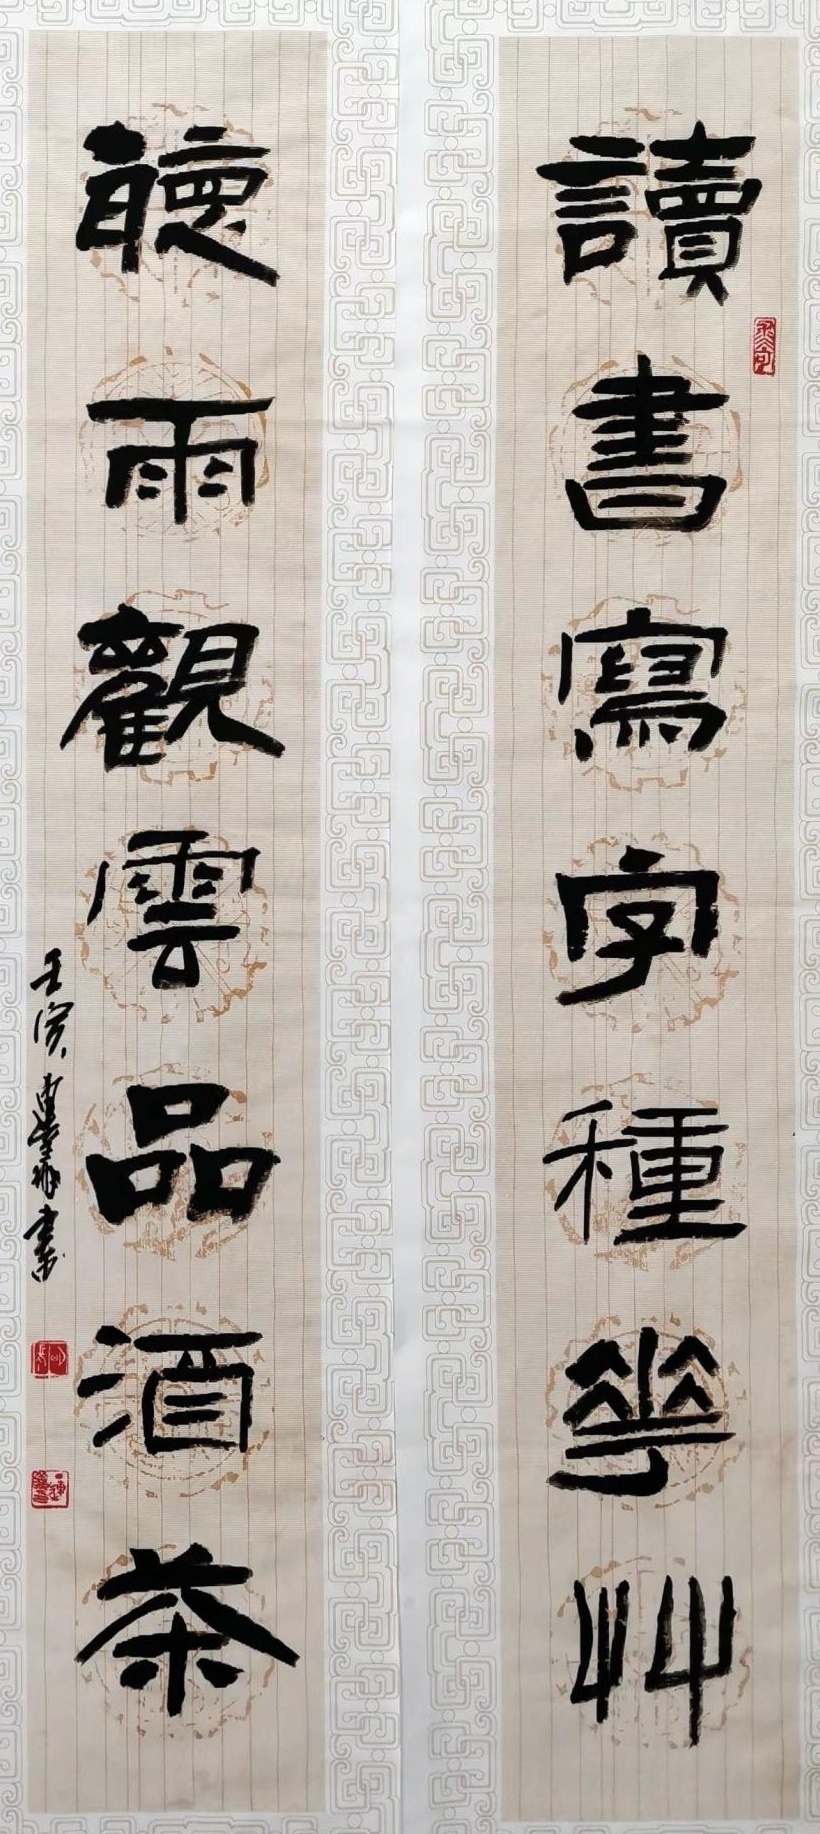 讀書寫字種華艸
聽雨觀雲品酒茶
壬寅
書